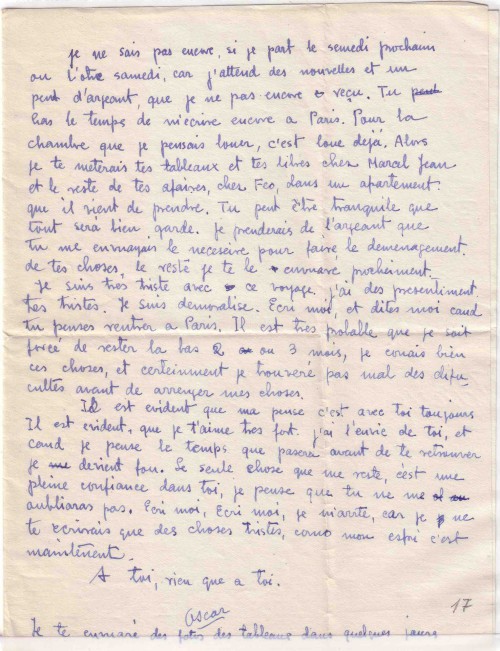 je ne sais pas encore, si je part le semedi prochain
ou l'otre samedi, car j'attend des nouvelles et un
peut d'argeant, que je ne pas encore reçu. Tu
has le temps de m'ecrire encore a Paris. Pour la
chambre que je pensais louer, c'est loue dejá. Alors
je te meterais tes tableaux et tes libres chez Marcel Jean
et le reste de tes afaires, chez Feo, dans un apartement
que il vient de prendre. Tu peut être tranquile que
tout sera bien garde. Je prenderais de l'argeant que
tu me envuayais le neceseire pour faire le demenagement
de tes choses, le reste je te le envuare procheiment.
Je suis tres triste avec ce voyage, j'ai des presentiment
tres tristes. Je suis demoralise. Ecri moi, et dites moi cand
tu penses rentrer a Paris. Il est tres probable que je soit
forcé de rester la bas 2 ou 3 mois, je conais bien
ces choses, et certeinment je trouvere pas mal des difu
cultes avant de arrenger mes choses.
Il est evident que ma pense c'est avec toi toujours
Il est evident, que je t'aime tres fort. j'ai l'envie de toi, et
cand je pense le temps que pasera avant de te retrouver
je devient fou. Le seule chose que me reste, c'est une
pleine confiance dans toi, je pense que tu ne me
oubliaras pas. Ecri moi, Ecri moi, je m'arrte, car je ne
te ecrivais que des choses tristes, como mon espri c'est
maintenent.
A toi, rien que a toi.
Oscar
17
Je te envuaré des fotos des tableaux dans quelques jours